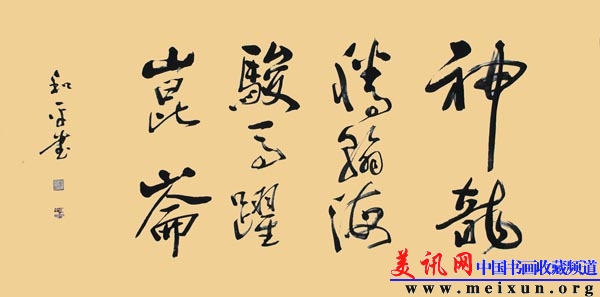 神龍
騰翰海
駿馬躍
崑崙
美讯网 中国书画收藏频道
www.meixun.org